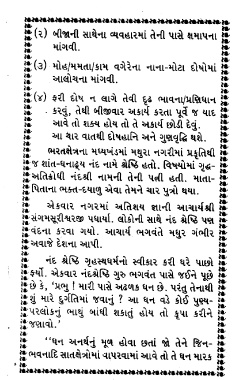 (૨) બીજાની સાથેના વ્યવહારમાં તેની પાસે ક્ષમાપના
માંગવી.
(૩) મોહ/મમતા/કામ વગેરેના નાના-મોટા દોષોમાં
આલોચના માંગવી.
(૪) ફરી દોષ ન લાગે તેવી દૃઢ ભાવના/પ્રણિધાન
કરવું, તેથી બીજીવાર અકાર્ય કરતા પૂર્વે જ યાદ
આવે તો શક્ય હોય તો તે અકાર્ય છોડી દેવું.
આ ચાર વાતથી દોષહાનિ અને ગુણવૃદ્ધિ થશે.
ભરતક્ષેત્રના મધ્યખંડમાં મથુરા નગરીમાં પ્રકૃતિથી
જ શાંત-ધનાઢ્ય નંદ નામે શ્રેષ્ઠિ હતો. વિષયોમાં ગૃદ્ધ-
અતિક્રોધી નંદશ્રી નામની તેની પત્ની હતી. માતા-
પિતાના ભક્ત-દયાળુ એવા તેમને ચાર પુત્રો થયા.
એકવાર નગરમાં અતિશય જ્ઞાની આચાર્યશ્રી
સંગમસૂરીશ્વરજી પધાર્યા. લોકોની સાથે નંદ શ્રેષ્ઠિ પણ
વંદના કરવા ગયો. આચાર્ય ભગવંતે મધુર ગંભીર
અવાજે દેશના આપી.
નંદ શ્રેષ્ઠિ ગૃહસ્થધર્મનો સ્વીકાર કરી ઘરે પાછો
ફર્યો. એકવાર નંદશ્રેષ્ઠિ ગુરુ ભગવંત પાસે જઈને પૂછે
છે કે, 'પ્રભુ ! મારી પાસે અઢળક ધન છે. પરંતુ તેનાથી
શું મારે દુર્ગતિમાં જવાનું ? આ ધન વડે કોઈ પુણ્ય-
પરલોકનું ભાથું બાંધી શકાતું હોય તો કૃપા કરીને
જણાવો.'
"ધન અનર્થનું મૂળ હોવા છતાં જો તેને જિન-
ભવનાદિ સાતક્ષેત્રોમાં વાપરવામાં આવે તો તે ધન મારક